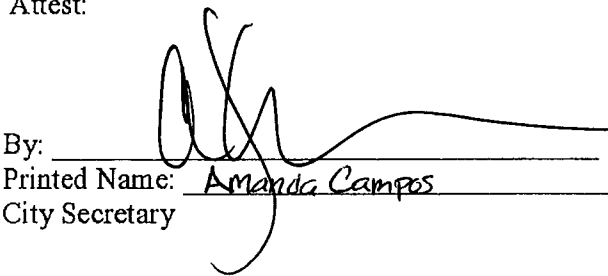 Attest:
By:
Printed Name: Amanda Campos
City Secretary